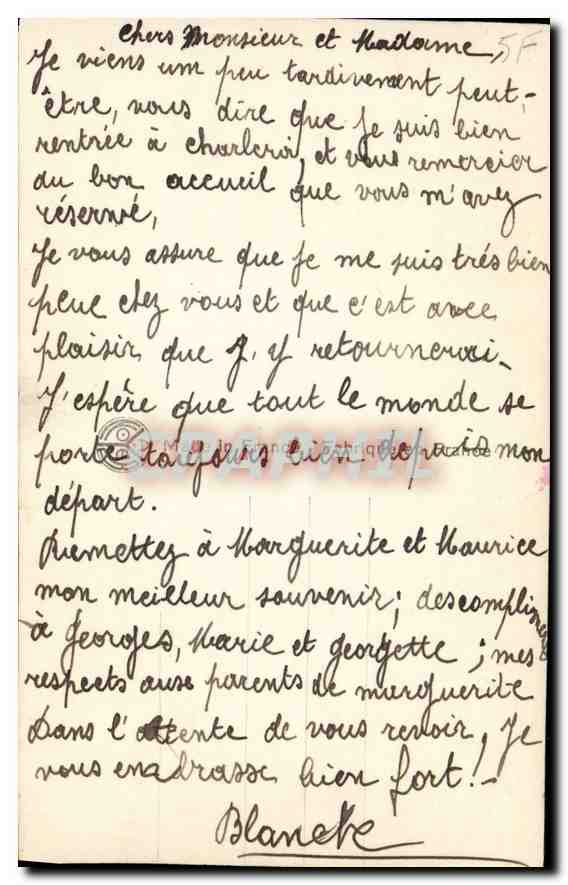 Chers Monsieur et Madame, 5F
Je viens um peu tardivement peut,-
être, vous dire que je suis bien
rentrée à Charleroi, et vous remercier
du bon accueil que vous m'avez
réservé,
Je vous assure que je me suis trés bien
plue chez vous et que c'est avec
plaisir que j'y retournerai-
J'espère que tout le monde se
porte toujours bien depuis mon
Made in France Fabriqué en France
départ.
Remettez à Marguerite et Maurice
mon meilleur souvenir; des compliments
à Georges, Marie et Georgette; mes
respects aux parents de marguerite
Dans l'attente de vous revoir, Je
vous embrasse bien fort!-
Blanche